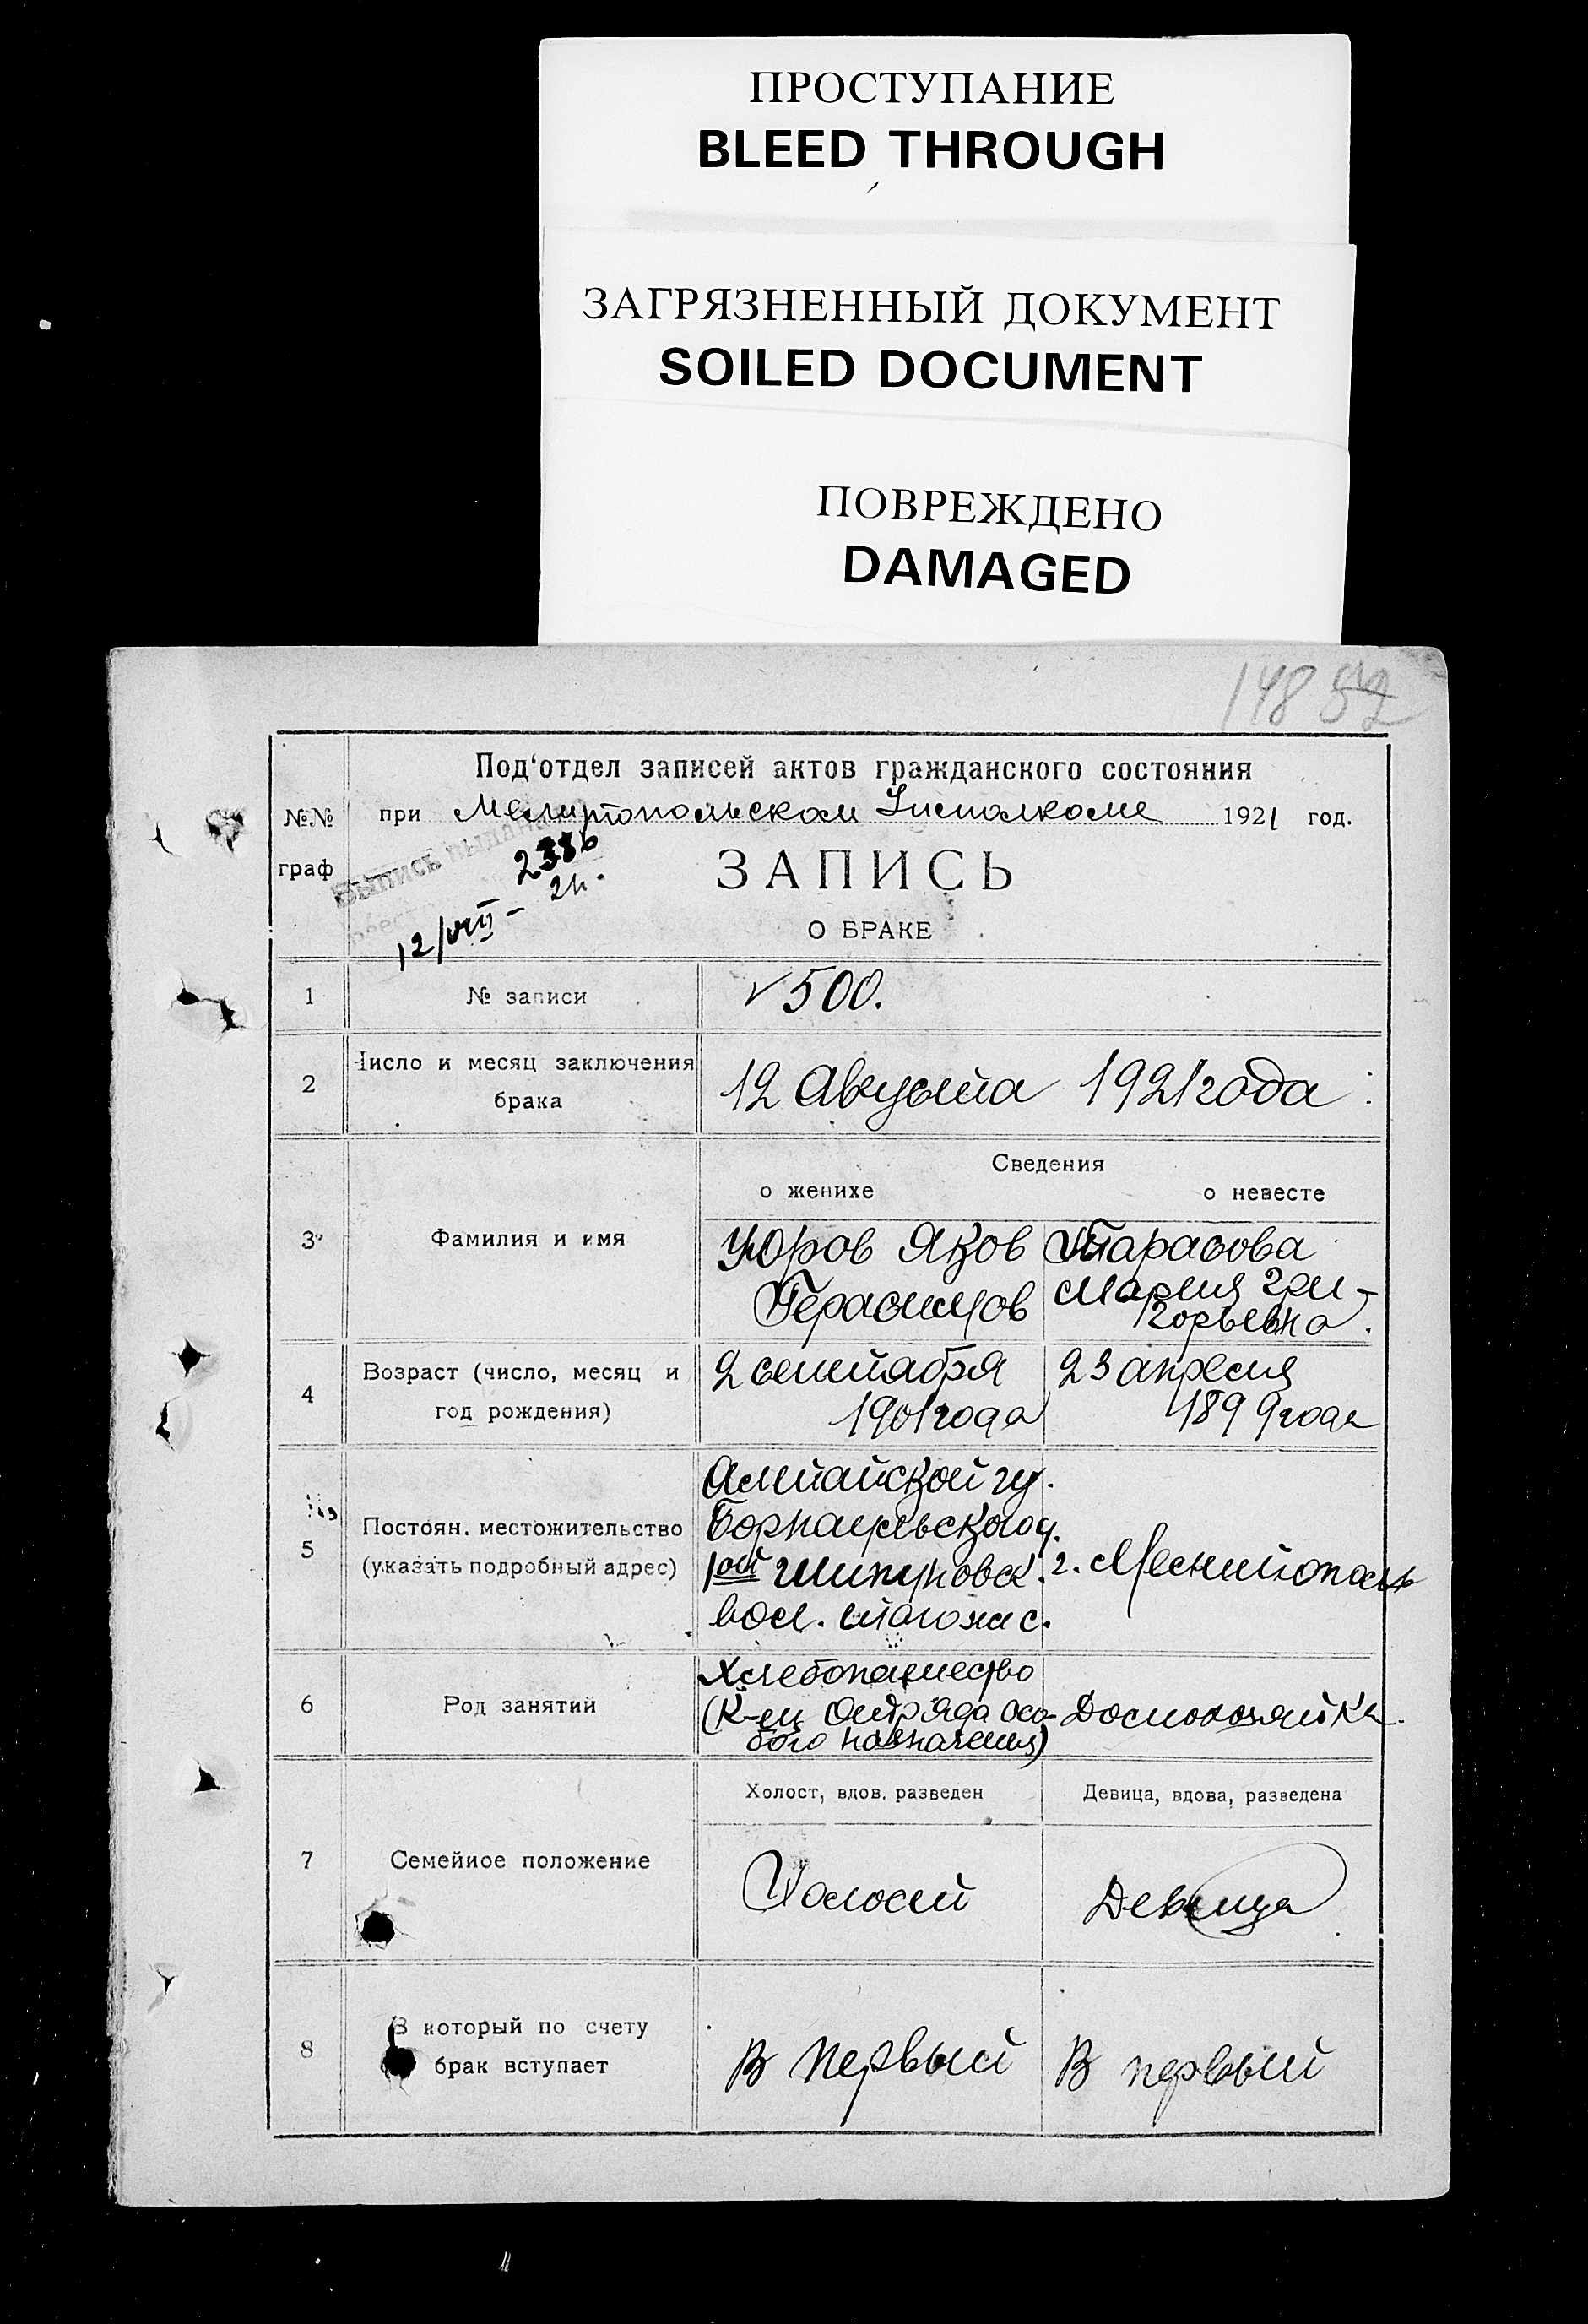 ПРОСТУПАНИЕ
BLEED THROUGH
ЗАГРЯЗНЕННЫЙ ДОКУМЕНТ
SOILED DOCUMENT
ПОВРЕЖДЕНО
DAMAGED
148 52
Под'отдел записей актов гражданского состояния
№№ граф
при Мелитопольском Исполкоме 1921 год.
Выпись выдана
2386
12/VIII – 21г.
ЗАПИСЬ
О БРАКЕ
1 № записи 500.
2 Число и месяц заключения
брака
12 Августа 1921 года
Сведения
о женихе о невесте
3 Фамилия и имя
Юров Яков
Герасимов
Тарасова
Мария Гри-
горьевна.
4 Возраст (число, месяц и
год рождения)
2 сентября
1901 года
23 апреля
1899 года
5 Постоян. местожительство
(указать подробный адрес)
Алтайской гу.
Борнаульского у.
1ой Шипуновск.
вол. тогож с.
г. Мелитополь
6 Род занятий
Хлебопашество
(К-ец Отдряда осо-
бого назначения)
Домохозяйка.
7 Семейное положение
Холост, вдов, разведен
Девица, вдова, разведена
Холостй
Девица
8 В который по счету
брак вступает
В первый
В первый